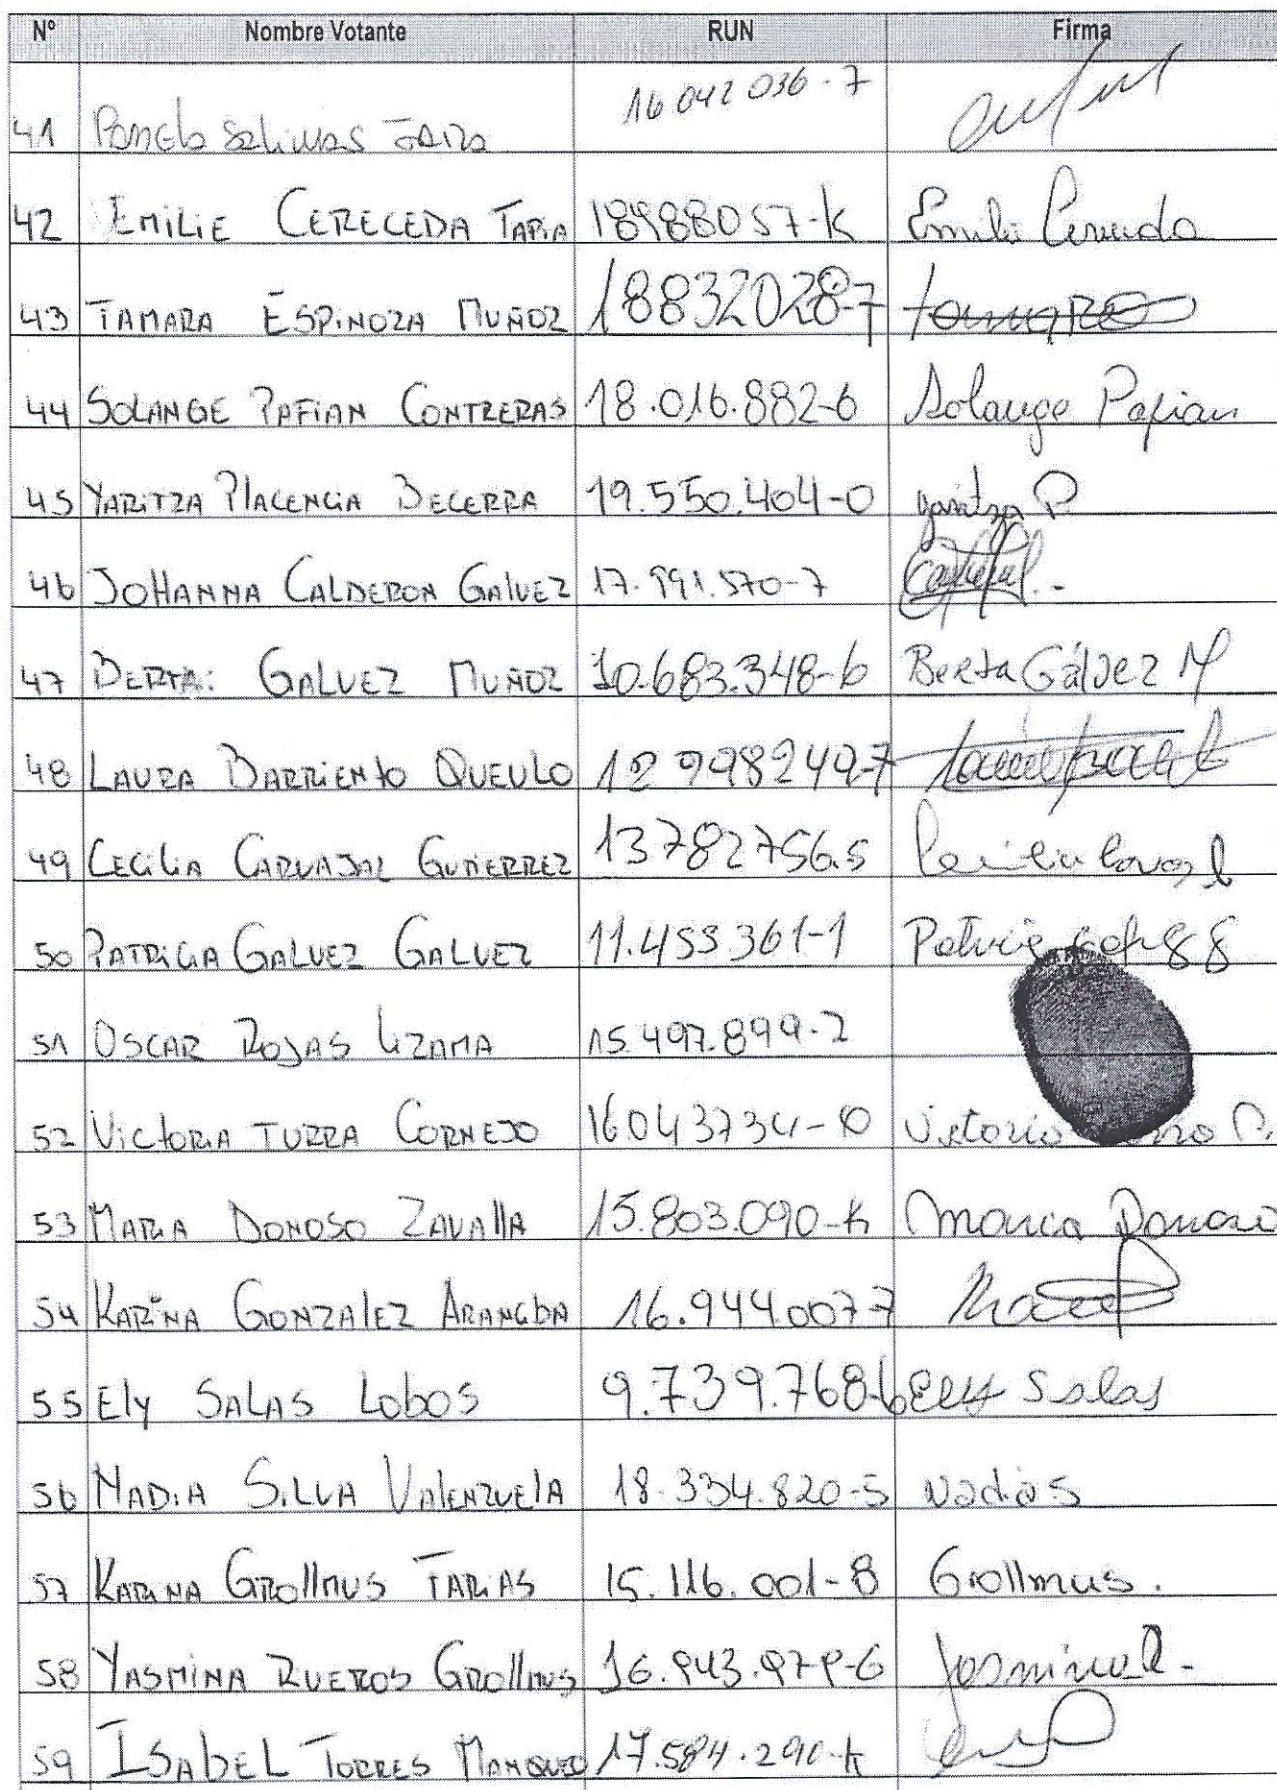 Nº Nombre Votante RUN Firma
41 Pamela Salinas 16 042 036-7
42 EMILIE CERECEDA TAPIA 18988057-K Emilie Cereceda
43 TAMARA ESPINOZA MUÑOZ 18832028-7 Tamara
44 SOLANGE PAFIAN CONTRERAS 18.016.882-6 Solange Pafian
45 YARITZA PLACENCIA BECERRA 19.550.404-0 yaritza P
46 JOHANNA CALDERON GALVEZ 17.991.570-7
47 BERTA GALVEZ MUÑOZ 10.683.348-6 Berta Gálvez M
48 LAURA BARRIENTO QUEULO 12 998249-7
49 CECILIA CARVAJAL GUTIERREZ 13782756.5
50 PATRICIA GALVEZ GALVEZ 11.453.361-1
51 OSCAR ROJAS LIZAMA 15.497.899-2
52 VICTORIA TURRA CORNEJO 16043734-0 Victoria
53 MARIA DONOSO ZAVALLA 15.803.090-K Maria Donoso
54 KARINA GONZALEZ 16.944.007-7
55 ELY SALAS LOBOS 9.739.768-6 Ely Salas
56 NADIA SILVA VALENZUELA 18.334.820-5 Nadia S
57 KARINA GROLLMUS FARIAS 15.116.001-8 Grollmus.
58 YASMINA RUEROS GROLLMUS 16.943.979-6 Yasmina R.
59 ISABEL TORRES 17.584.291-K